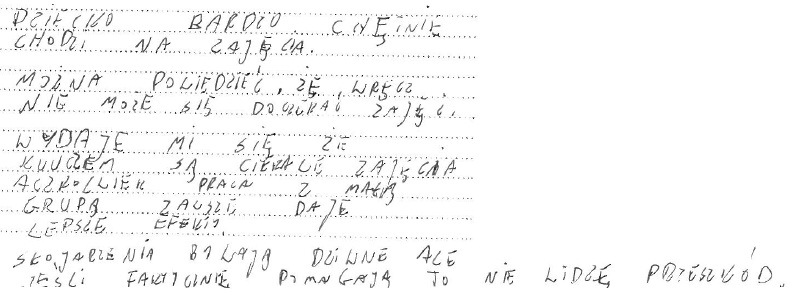 DZIECKO BARDZO CHĘTNIE
CHODZI NA ZAJĘCIA.
MOŻNA POWIEDZIEĆ, ŻE WRĘCZ
NIE MOŻE SIĘ DOCZEKAĆ ZAJĘĆ.
WYDAJE MI SIĘ ŻE
KLUCZEM SĄ CIEKAWE ZAJĘCIA
ACZKOLWIEK PRACA Z MAŁĄ
GRUPĄ ZAWSZE DAJE
LEPSZE EFEKTY.
SKOJARZENIA BYWAJĄ DZIWNE ALE
JEŚLI FAKTYCZNIE POMAGAJĄ TO NIE WIDZĘ PRZESZKÓD.